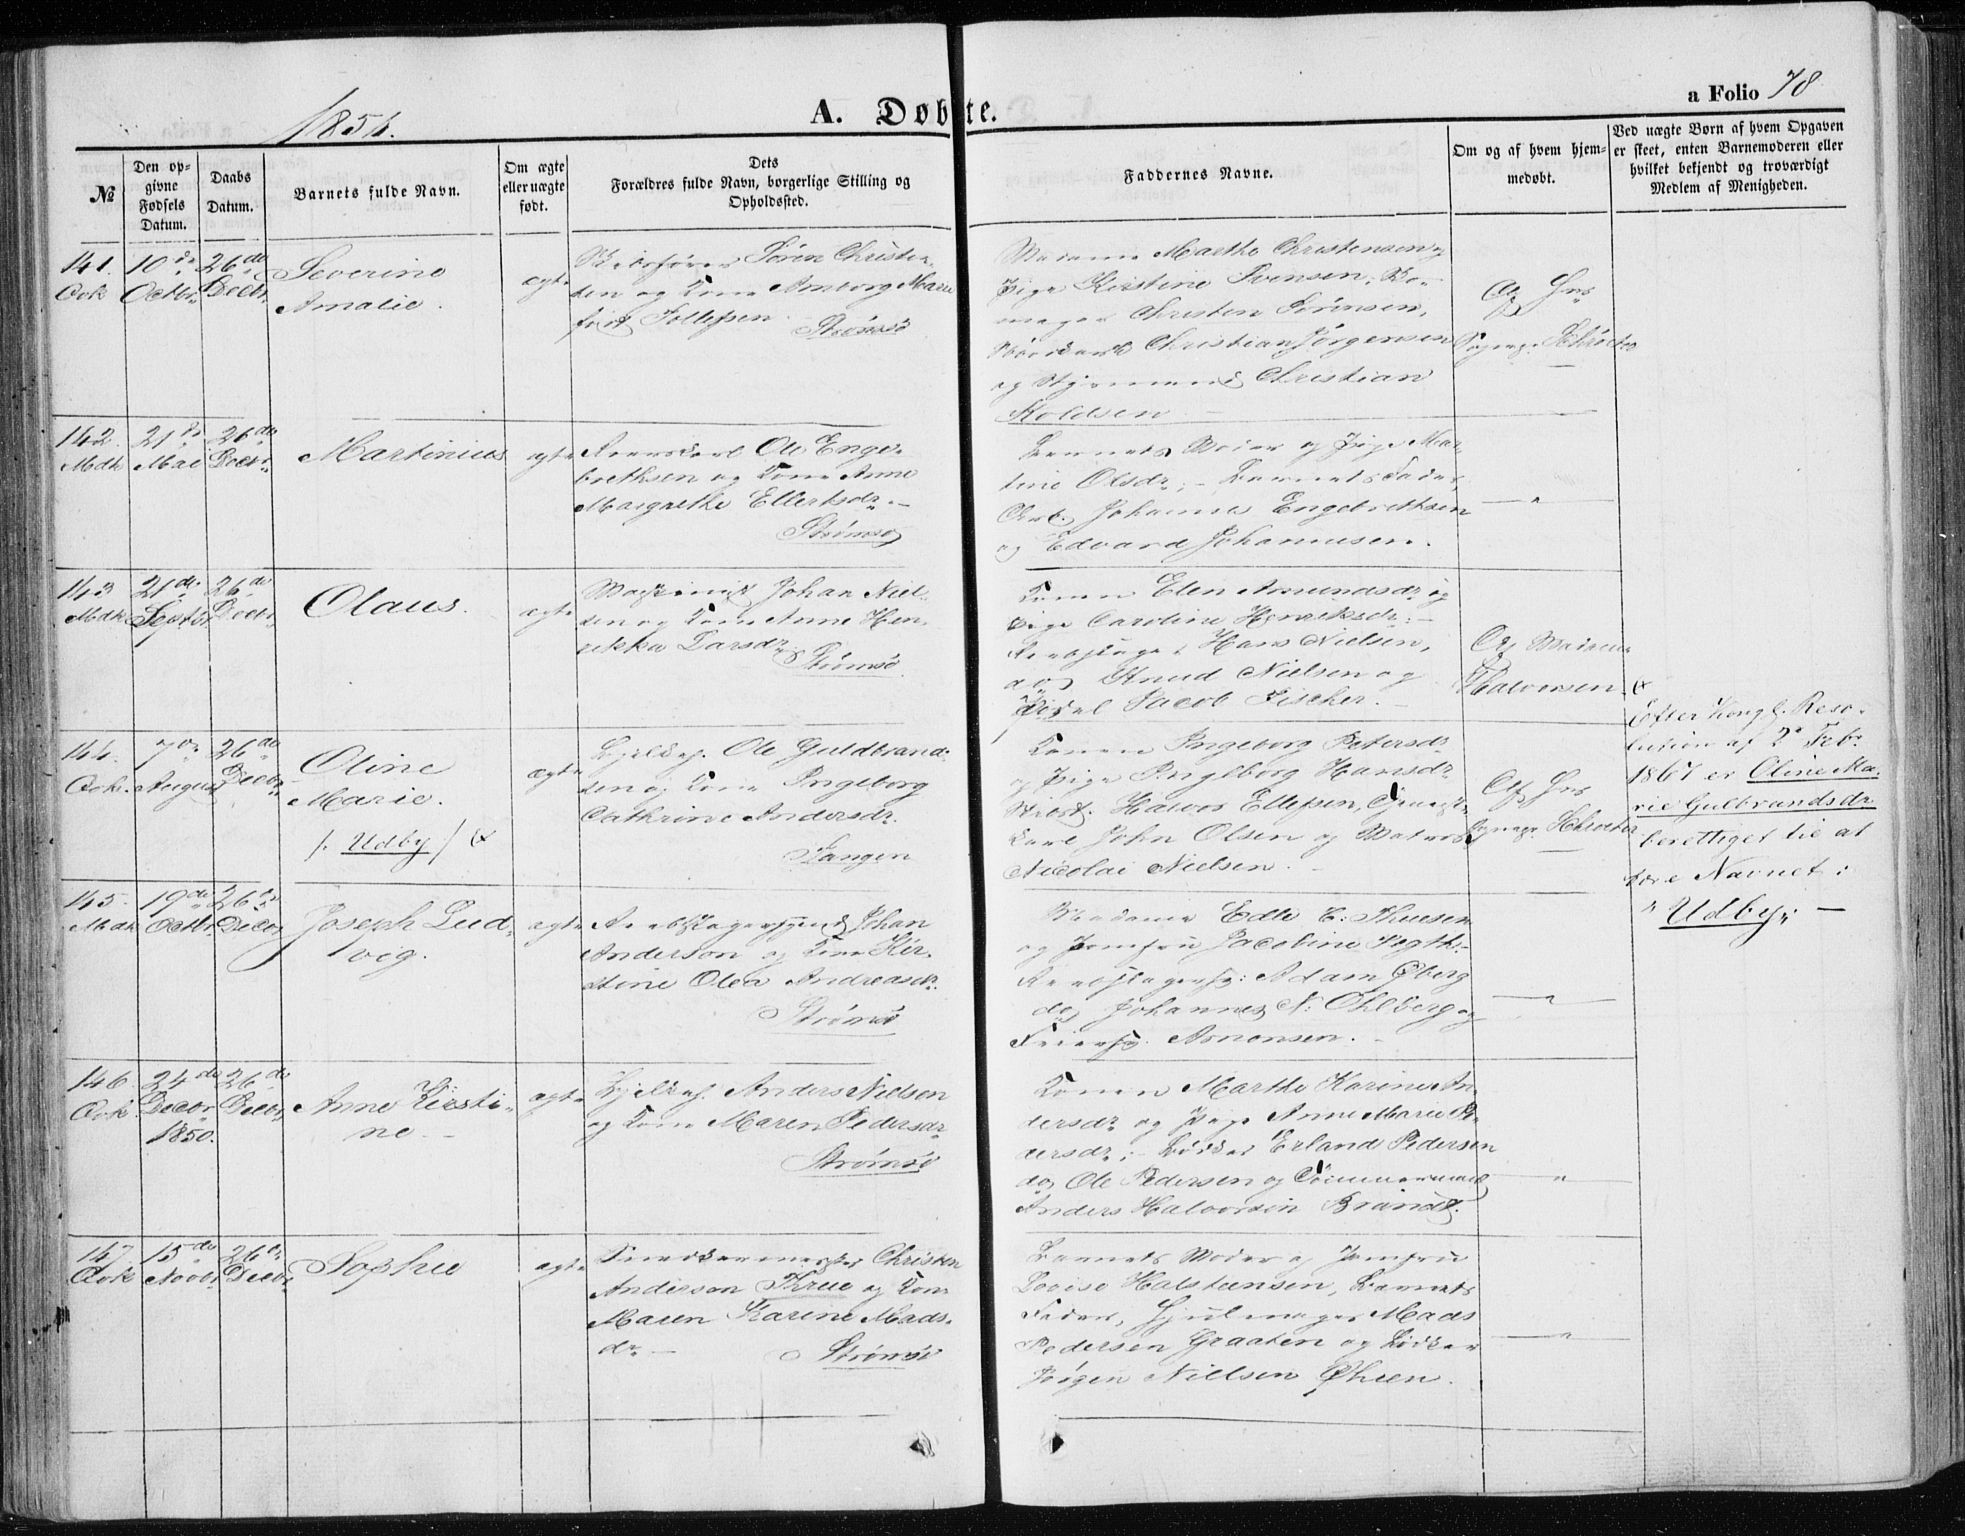 1851.
A. Døbte.
a Folio 78
№
Den op-
givne
Fødsels
Datum.
Daabs
Datum.
Barnets fulde Navn.
Om ægte
eller uægte
født.
Dets
Forældres fulde Navn, borgerlige Stilling og
Opholdssted.
Faddernes Navne.
Om og af hvem hjem-
medøbt.
Ved uægte Børn af hvem Opgaven
er skeet, enten Barnemoderen eller
hvilket bekjendt og troværdigt
Medlem af Menigheden.
141.
Qvk
10de
Octbr.
26de
Decbr.
Severine
Amalie.
ægte
Søren Christen-
sen og Kone Amborg Marie
født Tollefsen.
Strømsø
Madame Marthe Christensen og
Pige Kirstine Svensen,
Christen Sørensen,
Christian Jørgensen
og Styrmand Christian
Koldsen
Af Hr.
Schrøder
142.
Mdk
21de
Mai
26de
Decbr.
Martinius
ægte
Ole Enge-
brethsen og Kone Anne
Margrethe Ellertsdr.
Strømsø
Barnets Moder og Pige Mar-
tine Olsdr., Barnets Fader,
Johannes Engebrethsen
og Edvard Johannesen.
"
143
Mdk
21de
Septbr.
26de
Decbr.
Olaus.
ægte
Johan Niel-
sen og Kone Anne Hen-
rikka Larsdr.
Strømsø
Konen Elen Amundsdr. og
Pige Caroline Henriksdr.
Hans Nielsen,
do Knud Nielsen og
Jacob Fischer.
Af Madame
Halvorsen
144.
Qvk.
7de
August
26de
Decbr.
Oline
Marie.
/: Udby :/
ægte
Ole Guldbrand-
sen og Kone Ingeborg
Cathrine Andersdr.
Tangen
Konen Ingeborg Petersdr.
og Pige Ingeborg Hansdr.
Halvor Ellefsen,
John Olsen og Matros
Nicolai Nielsen.
Af Hr.
Schrøder
Efter Kongl. Reso-
lution af 2de Febr.
1867 er Oline Ma-
rie Gulbrandsdr.
berettiget til at
føre Navnet:
"Udby".
145.
Mdk
19de
Octbr.
26de
Decbr.
Joseph Lud-
vig.
ægte
Johan
Anderson og Kone Kir-
stine Olea Andreasdr.
Strømsø
Madame Edle C. Thuesen
og Jomfru Jacobine Vogth.
Adam Øberg
do Johannes N. Ohlberg og
Amonsen.
"
146
Qvk
24de
Decbr.
1850.
26de
Decbr.
Anne Kirsti-
ne.
ægte
Anders Nielsen
og Kone Maren Pedersdr.
Strømsø
Konen Marthe Karine An-
dersdr. og Pige Anne Marie Pe-
dersdr., Bødker Erland Pedersen
do Ole Pedersen og Tømmermand
Anders Halvorsen Brandt.
"
147
Qvk
15de
Novbr.
26de
Decbr.
Sophie
ægte
Snedkermester Christen
Anderson Krue og Kone
Maren Karine Mads-
dr.
Strømsø
Barnets Moder og Jomfru
Lovise Halsteensen, Barnets
Fader, Hjulmager Mads
Pedersen Graaten og Bødker
Jørgen Nielsen Øhren.
"